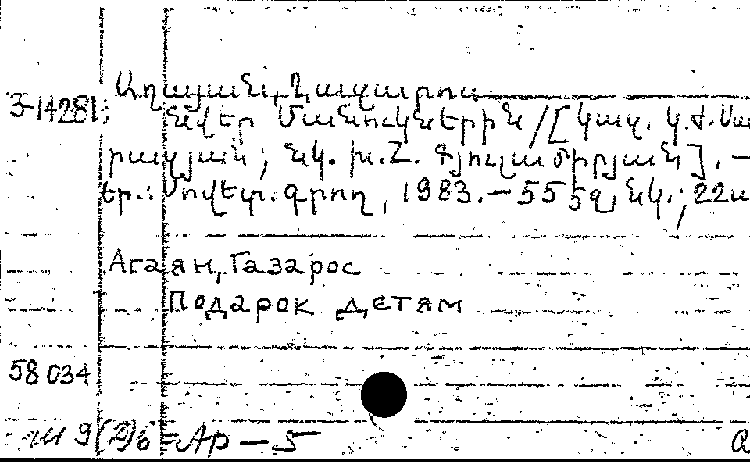 Աղայան, Ղազարոս
З-14281: Նվեր Մանուկներին /[Կազ. Կ.Ժ.Սա
րապյան; նկ. խ.Հ. Գյուլամիրյան]. —
Եր.: Սովետ. գրող, 1983.— 555 գ, նկ.; 22ս
Агаян, Газарос
Подарок детям
58 034
9(2)6 = Ар — 5